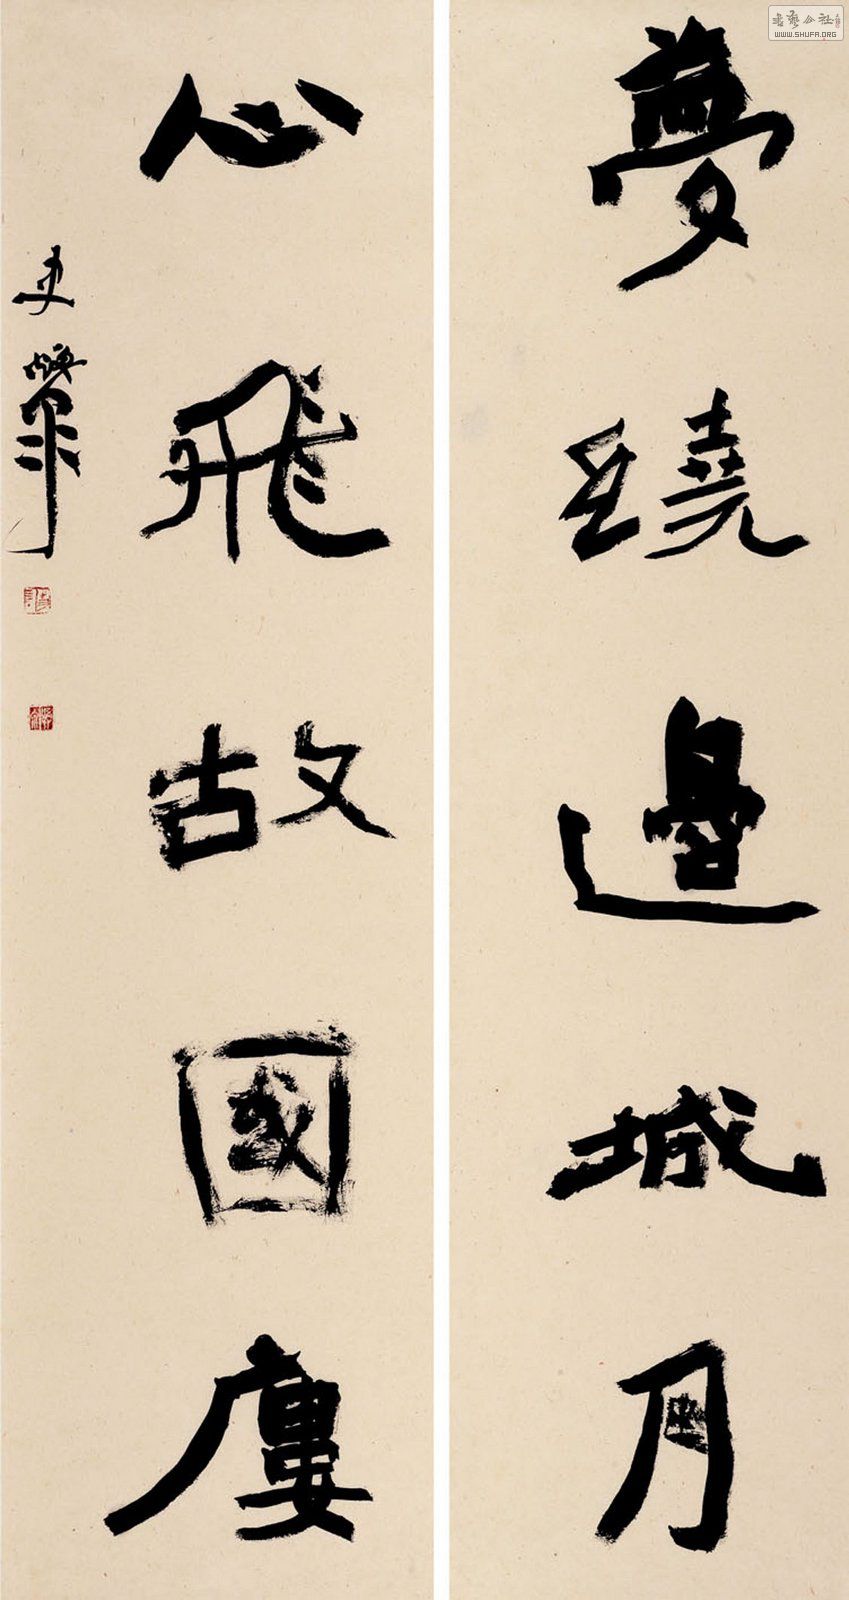 夢繞邊城月
心飛故國廔
史焕
書艺公社
WWW.SHUFA.ORG